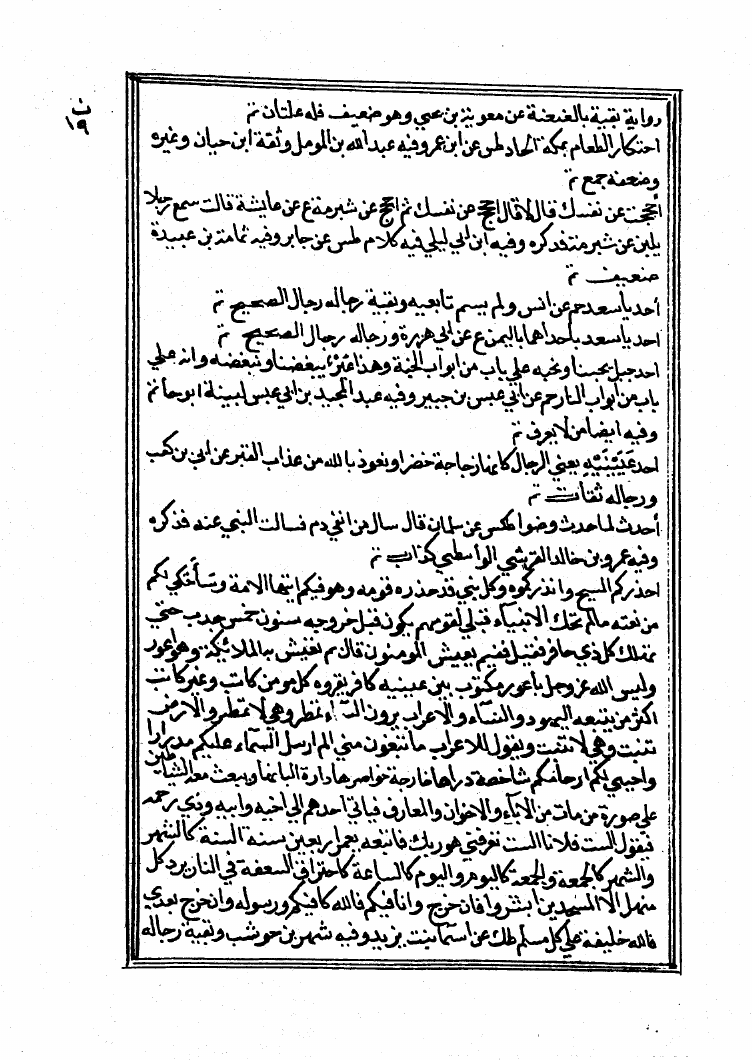 ث
١٩
رواية بقية بالعنعنة عن معوية بن يحيى وهو ضعيف فله علتان تم
احتكار الطعام بمكة الحاد لمس عن ابن عمر وفيه عبد الله بن المومل وثقة ابن حبان وغيره
وضعفه جمع تم
أحججت عن نفسك قال لا قال احجج عن نفسك ثم احجج عن شبرمة ع عن عايشة قالت سمع رجلا
يلبي عن شبرمة فذكره وفيه ابن ابي ليلي فيه كلام لمس عن جابر وفيه ثمامة بن عبيدة
ضعيف تم
أحد يا سعد حم عن انس ولم يسم تابعيه وبقية رجاله رجال الصحيح تم
احد يا سعد ع عن ابي هريرة ورجاله رجال الصحيح تم
احد جبل يحبنا ونحبه على باب من ابواب الجنة وهذا عير يبغضنا ونبغضه وانه على
باب من ابواب النار عن ابي عبس بن جبير وفيه عبد المجيد بن ابي عبس لينة ابو حاتم
وفيه ايضا من لا يعرف تم
احد عَيْنَيْهِ يعني الدجال كانها زجاجة خضرا ونعوذ بالله من عذاب القبر عن ابي بن كعب
ورجاله ثقات تم
أحدث لما حدث وضوا عن سلمان قال سال من انفي دم فسالت النبي عنه فذكره
وفيه عمرو بن خالد القرشي الواسطي كذاب تم
احذركم المسيح وانذركموه وكل نبي قد حذره قومه وهو فيكم ايتها الامة وسأحكي لكم
من نعته مالم تحك الانبياء قبلي لقومهم يكون قبل خروجه سنون خمس جدب حتي
يهلك كل ذي حافر فقيل فبم يعيش المومنون قال بم تعيش به الملائكة وهو اعور
وليس الله عز وجل باعور مكتوب بين عينيه كافر يقروه كل مومن كاتب وغير كاتب
اكثر من يتبعه اليهود والنساء والاعراب يرون السماء تمطر وهي لا تمطر والارض
تنبت وهي لا تنبت ويقول للاعراب ما تبغون مني الم ارسل السماء عليكم مدرارا
واحيي لكم انعامكم شاخصة دراها خارجة خواصرها دارة البانها ويبعث معه الشياطين
علي صورة من مات من الاباء والاخوان والمعارف فياتي احدهم الي اخيه وابيه وذي رحمه
فيقول الست فلانا الست تعرفني هو ربك فاتبعه يعمر اربعين سنه السنة كالشهر
والشهر كالجمعة والجمعة كاليوم واليوم كالساعة كاحتراق السعفة في النار يرد كل
منهل الا المسجدين ابشروا فان خرج وانا فيكم فالله كافيكم ورسوله وان خرج بعدي
فالله خليفة علي كل مسلم عن اسما بنت يزيد وفيه شهر بن حوشب وبقية رجاله